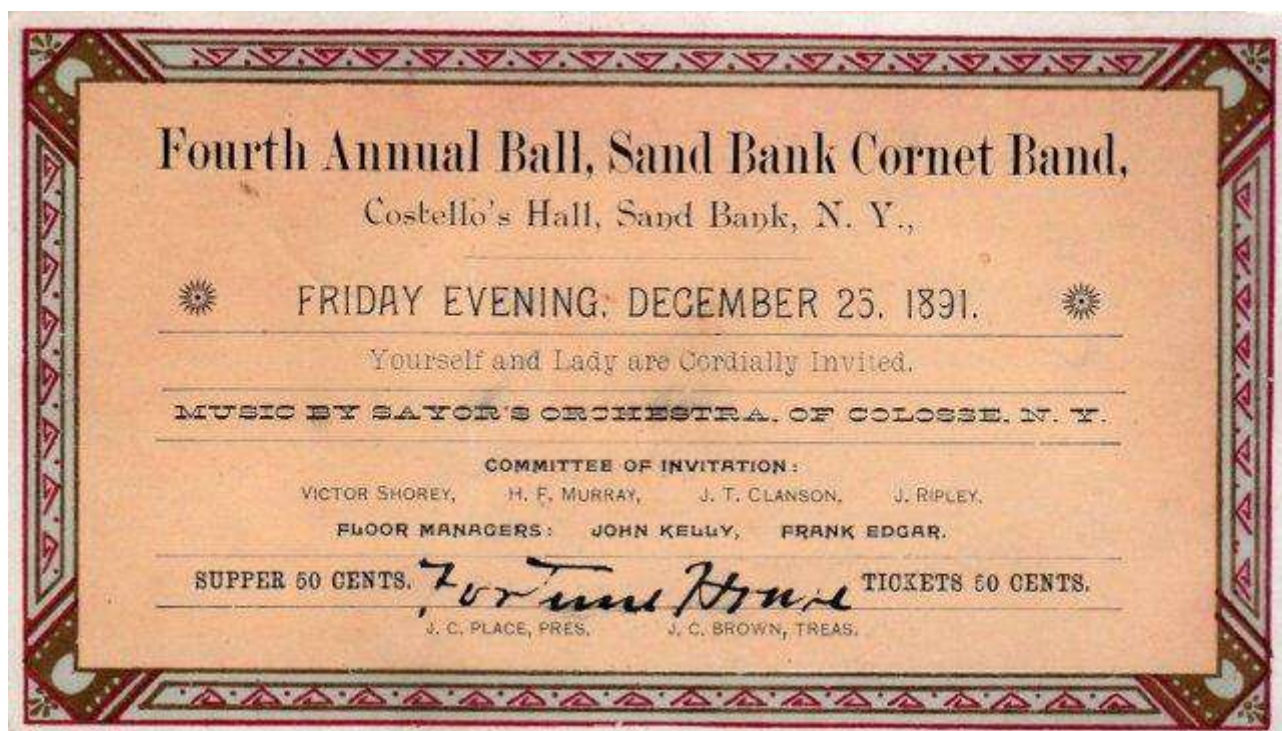 Fourth Annual Ball, Sand Bank Cornet Band,
Costello's Hall, Sand Bank, N. Y.,
FRIDAY EVENING, DECEMBER 25, 1891.
Yourself and Lady are Cordially Invited.
MUSIC BY SAYOR'S ORCHESTRA, OF COLOSSE, N. Y.
COMMITTEE OF INVITATION:
VICTOR SHOREY, H. F. MURRAY, J. T. CLANSON, J. RIPLEY.
FLOOR MANAGERS: JOHN KELLY, FRANK EDGAR.
SUPPER 50 CENTS. TICKETS 50 CENTS.
J. C. PLACE, PRES. J. C. BROWN, TREAS.